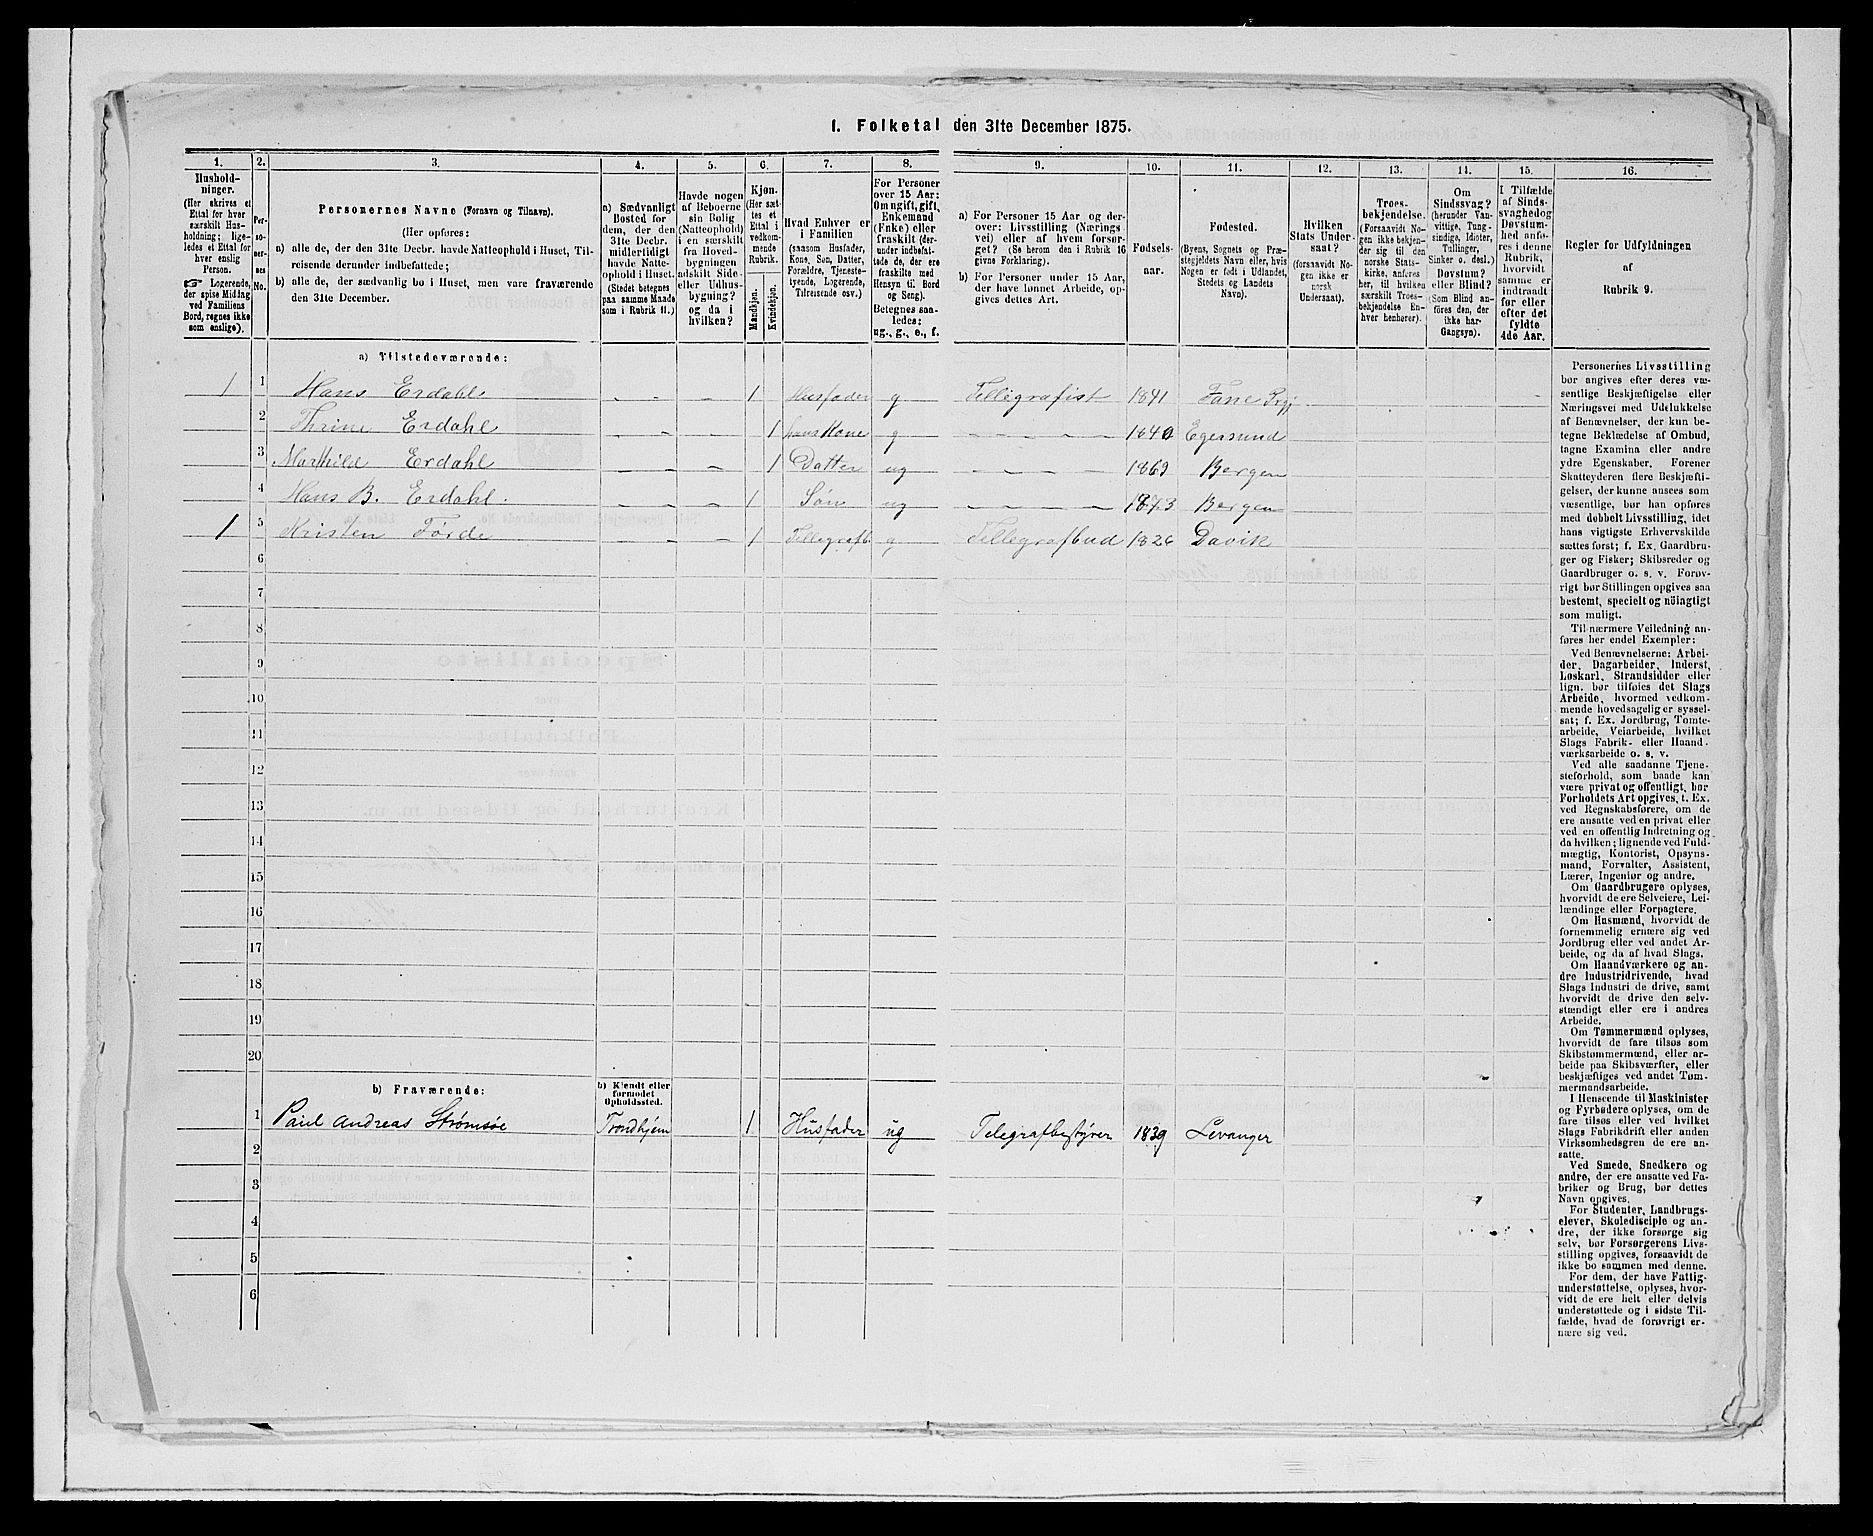 1. Folketal den 31te December 1875.
1. 2. 3. 4. 5. 6. 7. 8. 9. 10. 11. 12. 13. 14. 15. 16.
Hushold-
ninger.
(Her skrives et
Ettal for hver
særskilt Hus-
holdning; lige-
ledes et Ettal for
hver enslig
Person.
☞ Logerende,
der spise Middag
ved Familiens
Bord, regnes ikke
som enslige).
Per-
so-
nernes
No.
Personernes Navne (Fornavn og Tilnavn).
(Her opføres:
a) alle de, der den 31te Decbr. havde Natteophold i Huset, Til-
reisende derunder indbefattede;
b) alle de, der sædvanlig bo i Huset, men vare fraværende
den 31te December.
a) Sædvanligt
Bosted for
dem, der den
31te Decbr.
midlertidigt
havde Natte-
ophold i Huset.
(Stedet betegnes
paa samme Maade
som i Rubrik 11.)
Havde nogen
af Beboerne
sin Bolig
(Natteophold)
i en særskilt
fra Hoved-
bygningen
adskilt Side-
eller Udhus-
bygning?
og da i
hvilken?
Kjøn.
(Her sæt-
tes et
Ettal i
vedkom-
mende
Rubrik.
Mandkjøn.
Kvindekjøn.
Hvad Enhver er
i Familien
(saasom Husfader,
Kone, Søn, Datter,
Forældre, Tjeneste-
tyende, Logerende,
Tilreisende osv.)
For Personer
over 15 Aar:
Om ugift, gift,
Enkemand
(Enke) eller
fraskilt (der-
under indbefat-
tede de, der ere
fraskilte med
Hensyn til Bord
og Seng).
Betegnes saa-
ledes:
ug., g., e., f.
a) For Personer 15 Aar og der-
over: Livsstilling (Nærings
vei) eller af hvem forsør-
get? (Se herom den i Rubrik 16
givne Forklaring).
b) For Personer under 15 Aar,
der have lønnet Arbeide, op-
gives dettes Art.
Fødsels-
aar.
Fødested.
(Byens, Sognets og Præ-
stegjeldets Navn eller, hvis
Nogen er født i Udlandet,
Stedets og Landets
Navn).
Hvilken
Stats Under-
saat?
(forsaavidt No-
gen ikke er
norsk
Undersaat).
Troes-
bekjendelse.
(Forsaavidt No-
gen ikke bekjen-
der sig til den
norske Stats-
kirke, anføres
her, til hvilken
særskilt Troes-
bekjendelse En-
hver henhører).
Om
Sindssvag?
(herunder Van-
vittige, Tung-
sindige, Idioter,
Tullinger,
Sinker o. desl.)
Døvstum?
eller Blind?
(Som Blind an-
føres den, der
ikke har
Gangsyn).
I Tilfælde
af Sinds-
svaghed og
Døvstum-
hed anfø-
res i denne
Rubrik,
hvorvidt
samme er
indtraadt
før eller
efter det
fyldte
4de Aar.
Regler for Udfyldningen
af
Rubrik 9.
a) Tilstedeværende:
1 1 Hans Erdahl - - - 1 Husfader g Tellegrafist 1841 Fane Prgj
2 Thrine Erdahl - - 1 hans Kone g - - - - 1840 Egersund
3 Mathild Erdahl - - - 1 Datter ug - - - - 1869 Bergen
4 Hans B. Erdahl. - - - 1 Søn ug - - - - 1873 Bergen
1 5 Kristen Förde - - - 1 Tellegrafb. g Tellegrafbud 1826 Davik
6
7
8
9
10
11
12
13
14
15
16
17
18
19
20
b) Fraværende:
b) Kjendt eller
formodet
Opholdssted.
1 Paul Andreas Strømsøe Trondhjem 1 Husfader ug Telegrafbestyrer 1839 Levanger
2
3
4
5
6
Personernes Livsstilling
bør angives efter deres væ-
sentlige Beskjæftigelse eller
Næringsvei med Udelukkelse
af Benævnelser, der kun be-
tegne Beklædelse af Ombud,
tagne Examina eller andre
ydre Egenskaber. Forener
Skatteyderen flere Beskjæfti-
gelser, der kunne ansees som
væsentlige, bør han opføres
med dobbelt Livsstilling, idet
hans vigtigste Erhvervskilde
sættes først; f. Ex. Gaardbru-
ger og Fisker; Skibsreder og
Gaardbruger o. s. v. Forøv-
rigt bør Stillingen opgives saa
bestemt, specielt og nöiagtigt
som muligt.
Til nærmere Veiledning an-
føres her endel Exempler:
Ved Benævnelserne: Arbei-
der, Dagarbeider, Inderst,
Løskarl, Strandsidder eller
lign. bør tilføies det Slags
Arbeide, hvormed vedkom-
mende hovedsagelig er syssel-
sat; f. Ex. Jordbrug, Tomte-
arbeide, Veiarbeide, hvilket
Slags Fabrik- eller Haand-
værksarbeide o. s. v.
Ved alle saadanne Tjene-
steforhold, som baade kan
være privat og offentligt, bør
Forholdets Art opgives, t. Ex.
ved Regnskabsførere, om de
ere ansatte ved en privat eller
ved en offentlig Indretning og
da hvilken; lignende ved Fuld-
mægtig, Kontorist, Opsyns-
mand, Forvalter, Assistent,
Lærer, Ingeniør og andre.
Om Gaardbrugere oplyses,
hvorvidt de ere Selveiere, Lei-
lændinge eller Forpagtere.
Om Husmænd, hvorvidt de
fornemmelig ernære sig ved
Jordbrug eller ved andet Ar-
beide, og da af hvad Slags.
Om Haandværkere og an-
dre Industridrivende, hvad
Slags Industri de drive, samt
hvorvidt de drive den selv-
stændigt eller ere i andres
Arbeide.
Om Tømmermænd oplyses,
hvorvidt de fare tilsøs som
Skibstømmermænd, eller ar-
beide paa Skibsværfter, eller
beskjæftiges ved andet Tøm-
mermandsarbeide.
I Henseende til Maskinister
og Fyrbødere oplyses, om de
fare tilsøs eller ved hvilket
Slags Fabrikdrift eller anden
Virksomhedsgren de ere an-
satte.
Ved Smede, Snedkere og
andre, der ere ansatte ved Fa-
briker og Brug, bør dettes
Navn opgives.
For Studenter, Landbrugs-
elever, Skoledisciple og an-
dre, der ikke forsørge sig
selv, bør Forsørgerens Livs-
stilling opgives, forsaavidt de
ikke bo sammen med denne.
For dem, der have Fattig-
understøttelse, oplyses, hvor-
vidt de ere helt eller delvis
understøttede og i sidste Til-
fælde, hvad de forøvrigt er-
nære sig ved.